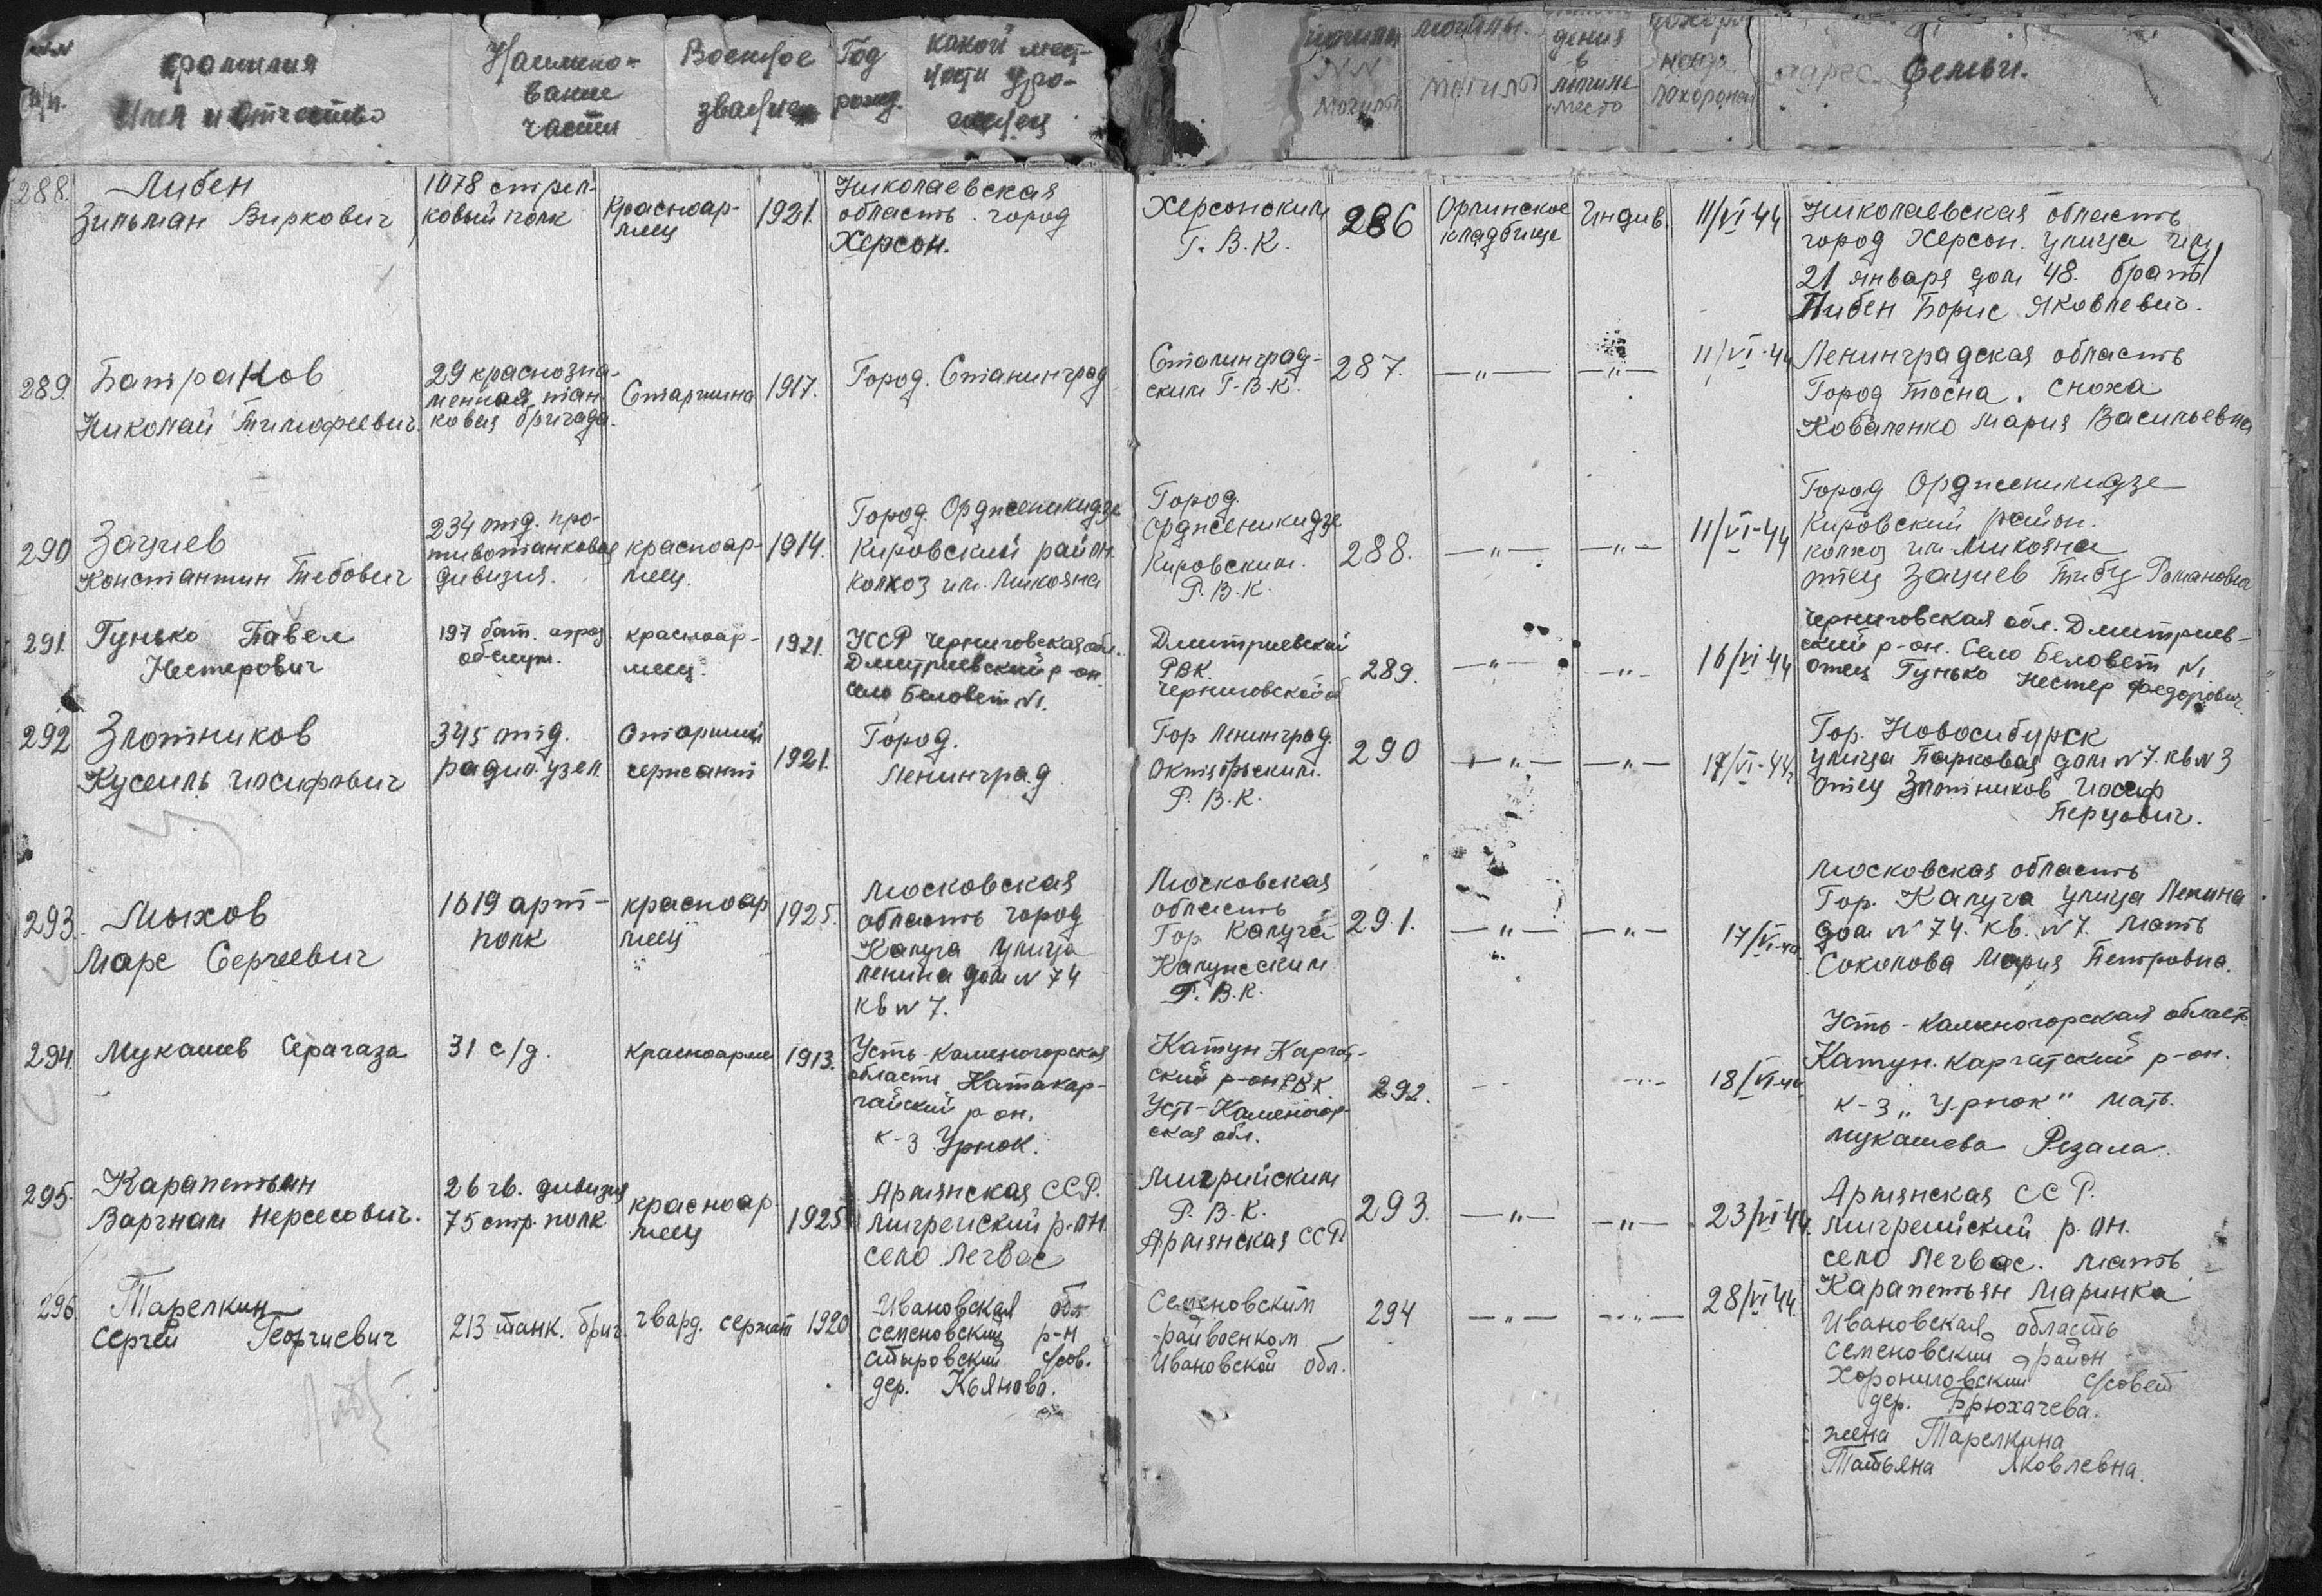 Фамилия
Имя и Отчество
Наимено-
вание
части
Военное
звание
Год
рожд.
какой мест-
ности уро-
женец
NN
могилы
могилы
дения
в
могиле
место
похоронен
адрес семьи.
288. Либен
Зильман Виркович
1078 стрел-
ковый полк
Красноар-
меец
1921.
Николаевская
область город
Херсон.
Херсонским
Г. В. К.
286
Орлинское
кладбище
Индив.
11/VI-44
Николаевская область
город Херсон. улица им
21 января дом 48. брат
Либен Борис Яковлевич.
289. Батраков
Николай Тимофеевич.
29 краснозна-
менная тан
ковая бригада.
Старшина
1917.
Город. Сталинград
Сталинград-
ским Г.В.К.
287.
—"—
—"—
11/VI-44
Ленинградская область
Город Тосна. Сноха
Коваленко Мария Васильевна
290 Зацуев
Константин Тебович
234 отд. про-
тивотанковая
дивизия.
красноар-
меец.
1914.
Город. Орджоникидзе
Кировский район.
колхоз им. Микояна
Город.
Орджоникидзе
Кировским.
Р.В.К.
288.
—"—
—"—
11/VI-44
Город Орджоникидзе
Кировский район.
колхоз им Микояна
отец Зацуев Романович
291. Гунько Павел
Нестерович
197 бат. аэрод.
обслуж.
красноар-
меец.
1921.
УССР Черниговская обл.
Дмитриевский р-он.
село Беловет №1.
Дмитриевский
РВК.
Черниговской об
289.
—"—
—"—
16/VI-44
Черниговская обл. Дмитриев-
ский р-он. Село Беловет №1
отец Гунько Нестер Федорович.
292 Злотников
Кусеиль Иосифович
345 отд.
радио. узел.
Старший
сержант
1921.
Город.
Ленинград
Гор Ленинград.
Октябрьским.
Р. В. К.
290
—"—
—"—
17/VI-44
Гор. Новосибурск
улица Парковая дом №7. кв №3
отец Злотников Иосиф
Перцович.
293. Мыхов
Марс Сергеевич
1619 арт-
полк
красноар
меец
1925.
Московская
область город
Калуга улица
Ленина дом №74
кв №7.
Московская
область
Гор Калуга
Калужским
Г. В. К.
291.
—"—
—"—
17/VI-44
Московская область
Гор. Калуга улица Ленина
дом №74. кв. №7. Мать
Соколова Мария Петровна.
294. Мукашев Серагаза
31 с/д.
красноарме
1913.
Усть-Каменогорская
область Катакар-
гайский р-он.
к-з Урюк.
Катун Каргай-
ский р-он РВК
Усть-Каменогор-
ская обл.
292.
- -
-"-
18/VI-44
Усть-Каменогорская област.
Катун. каргатский р-он.
к-з „Урюк" мать.
Мукашева Резала.
295. Карапетьян
Варгнам Нерсесович.
26 гв. дивизия
75 стр. полк
красноар
меец
1925
Армянская ССР.
Мигрейский р-он.
село Легвас
Мигрийским
Р. В. К.
Армянская ССР
293.
—"—
—"—
23/VI-44.
Армянская ССР.
Мигрейский р. он.
село Легвас. мать
Карапетьян Маринка
296. Тарелкин
Сергей Георгиевич
213 танк. бриг.
гвард. сержант
1920
Ивановская обл
Семеновский р-н
с/сов.
дер. Кьяново.
Семеновским
райвоенком
Ивановской обл.
294
—"—
—"—
28/VI-44.
Ивановская область
Семеновский район
с/совет
дер. Брюхачева.
жена Тарелкина
Татьяна Яковлевна.